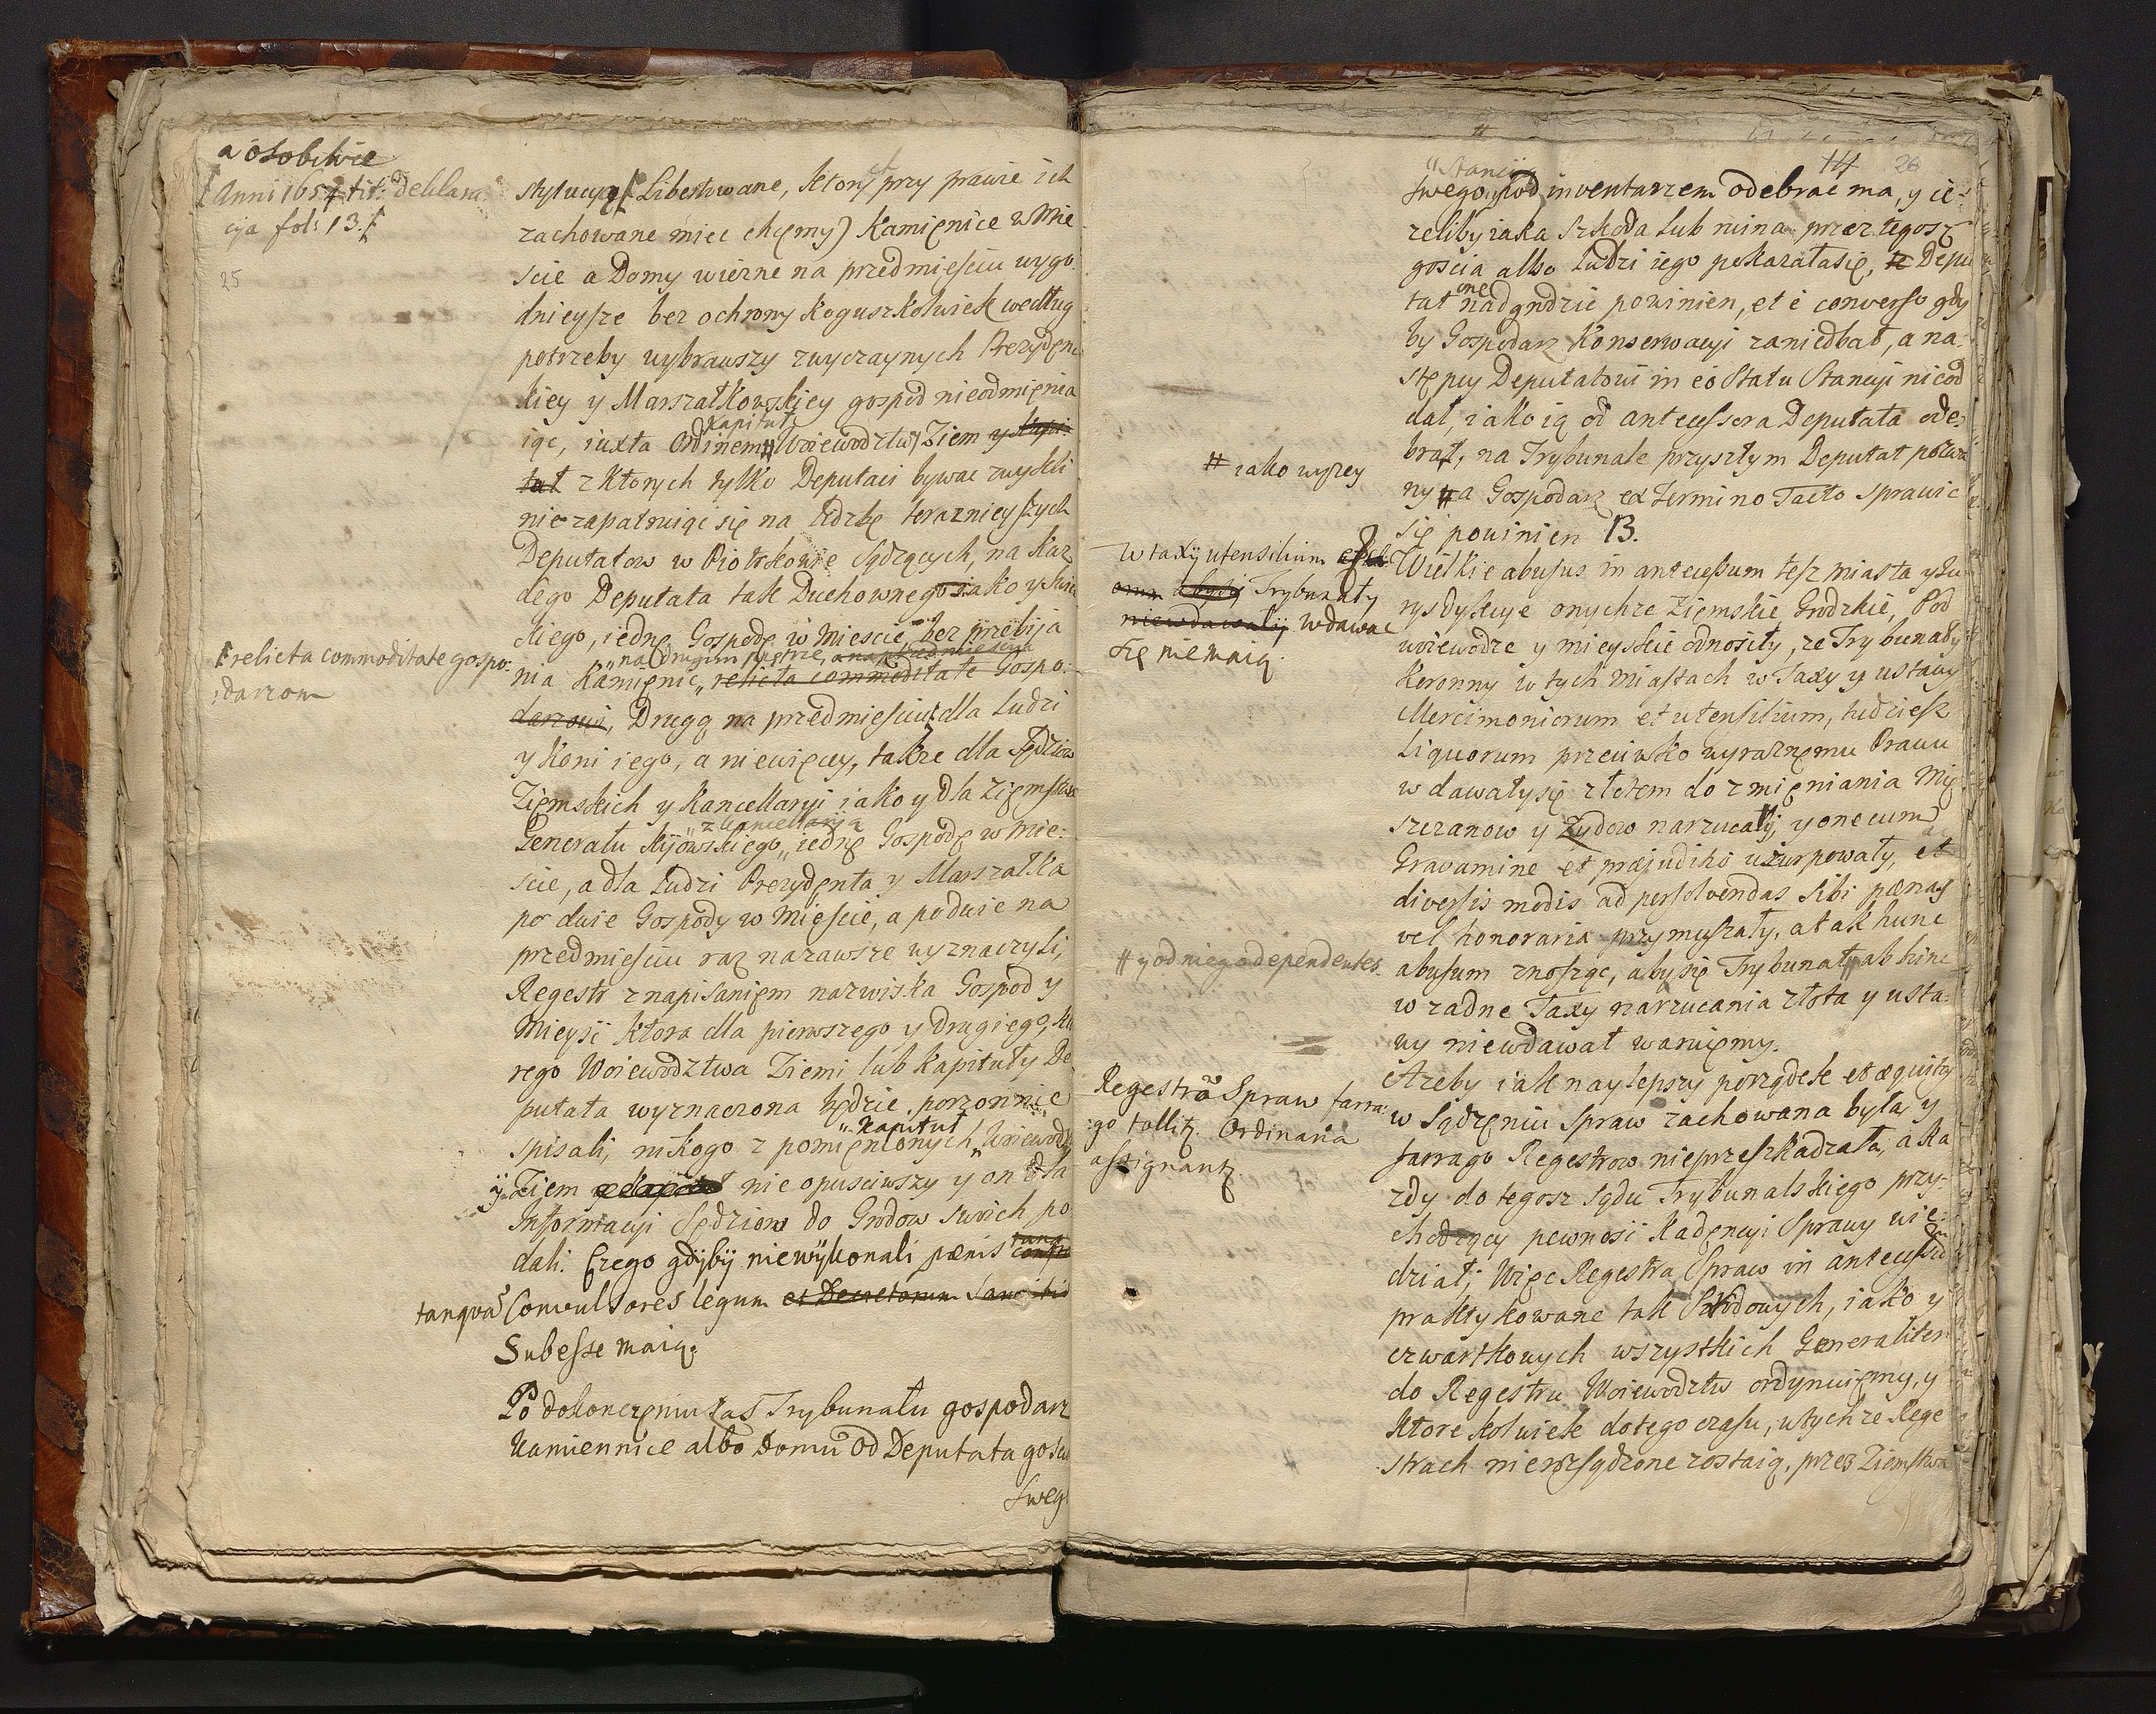 a osobliwie
Anni 1654 tit: Deklara
cija fol: 13.
25
relicta commoditate gospo:
darzom
stytucyą Libertowane, ktory przy prawie ich
zachowane miec chcęmy) Kamięnice w Mie
scie a Domy wierne na przedmięsciu wygo
dnieysze bez ochrony koguszkolwiek według
potrzeby wybrawszy zwyczaynych Prezydenc
kiey y Marszałkowskiey gospod nieodmięnia
Kapituł
iąc, iuxta Ordinem Woiewodztw, Ziem y Kapi
tuł z ktorych tylko Deputaci bywac zwykli
nie zapatruiąc się na lidzbę teraznieyszych
Deputatow w Piotrkowie Sądzących, na Kaz
dego Deputata tak Duchownego iako y Swie
ckiego, iednę Gospodę w Miescie, bez przebija
na drugim piętrze, a na przedmiesciu
nia Kamięnic, relicta commoditate Gospo:
darzowi, Drugą na przedmięsciu dla Ludzi
y Koni iego, a niewięcey, także dla Sędziow
Zięmskich y Kancellaryi iako y dla Zięmstwa
z Kancellariją
Generału Kijowskiego, iednę Gospodę w Mie:
scie, a dla Ludzi Prezydęnta y Marszałka
po dwie Gospody w Mięscie, a po dwie na
przedmięsciu raz nazawsze wyznaczyli,
Regestr z napisanięm nazwiska Gospod y
Mieysc ktora dla pierwszego y Drugiego, kto
rego Woiewodztwa Ziemi lub Kapituły De
putata wyznaczona będzie porzonnie
Kapituł
spisali, nikogo z pomięnionych, Woiewodztw
y Ziem nie opusciwszy y on dla
Informacyi Sędziow do Grodow swoich po
dali. Czego gdyby niewykonali pænis
tanquam Convulsores legum et Decretorum Sancitis
Subesse maią.
Po dokonczęniu zas Trybunału gospodarz
Kamiennice albo Domu od Deputata goscia
Sweg
14 26
Stancyą
swego, pod inventarzem odebrac ma, y ie:
zeliby iaka Szkoda lub ruina przez tegosz
goscia albo Ludzi iego pokazałasię, te Depu
one
tat nadgrodzic powinien, et è converso gdy
by Gospodarz Konserwacyi zaniedbał, a na
stępcy Deputatowi in eo Statu Stancyi nieod
dał, iako ią od antecessora Deputata ode:
brał, na Trybunale przyszłym Deputat pozwa
ny # a Gospodarz ex termino Tacto sprawic
się powinien B.
# iako wyzey
W taxij utensilium
Trybunały
niewdawały wdawac
się nie maią.
Wielkie abusus in antecessum tesz miasta y Ju
rysdykcye onychze Ziemskie Grodzkie, Pod
woiewodze y mieyskie odnosiły, ze Trybunały
Koronny w tych miastach w Taxy y ustawy
Mercimoniorum et utensilium, tudziesz
Liquorum przeciwko wyraznęmu Prawu
wdawałysię złotem do zmięniania Mię
szczanow y Żydow narzucały, y one cum
Gravamine et præjudiho uzurpowały, et
diversis modis ad persolvendas Sibi pænas
vel honoraria przymuszały, a tak hunc
abusum znosząc, aby się Trybunał # ab hinc
w zadne Taxy narzucania złota y usta:
wy niewdawał waruięmy.
# y od niego dependentes
Regestrow Spraw farra:
go tollitr. Ordinaria
assignantr
Ażeby iak naylepszy porządek et æquitas
w Sądzęniu Spraw zachowana była y
farrago Regestrow nieprzeszkadzała, a ka
zdy do tegosz Sądu Trybunalskiego przy:
chodzący pewnosc Kadęncyi Sprawy wie:
dział, Więc Regestra Spraw in antecessum
praktykowane tak Szkodowych, iako y
czwartkowych wszystkich Generaliter
do Regestru Woiewodztw ordynuięmy, y
ktore kolwiek do tego czasu, w tychze Rege
strach nierozsądzone zostaią, przez Ziemstwa